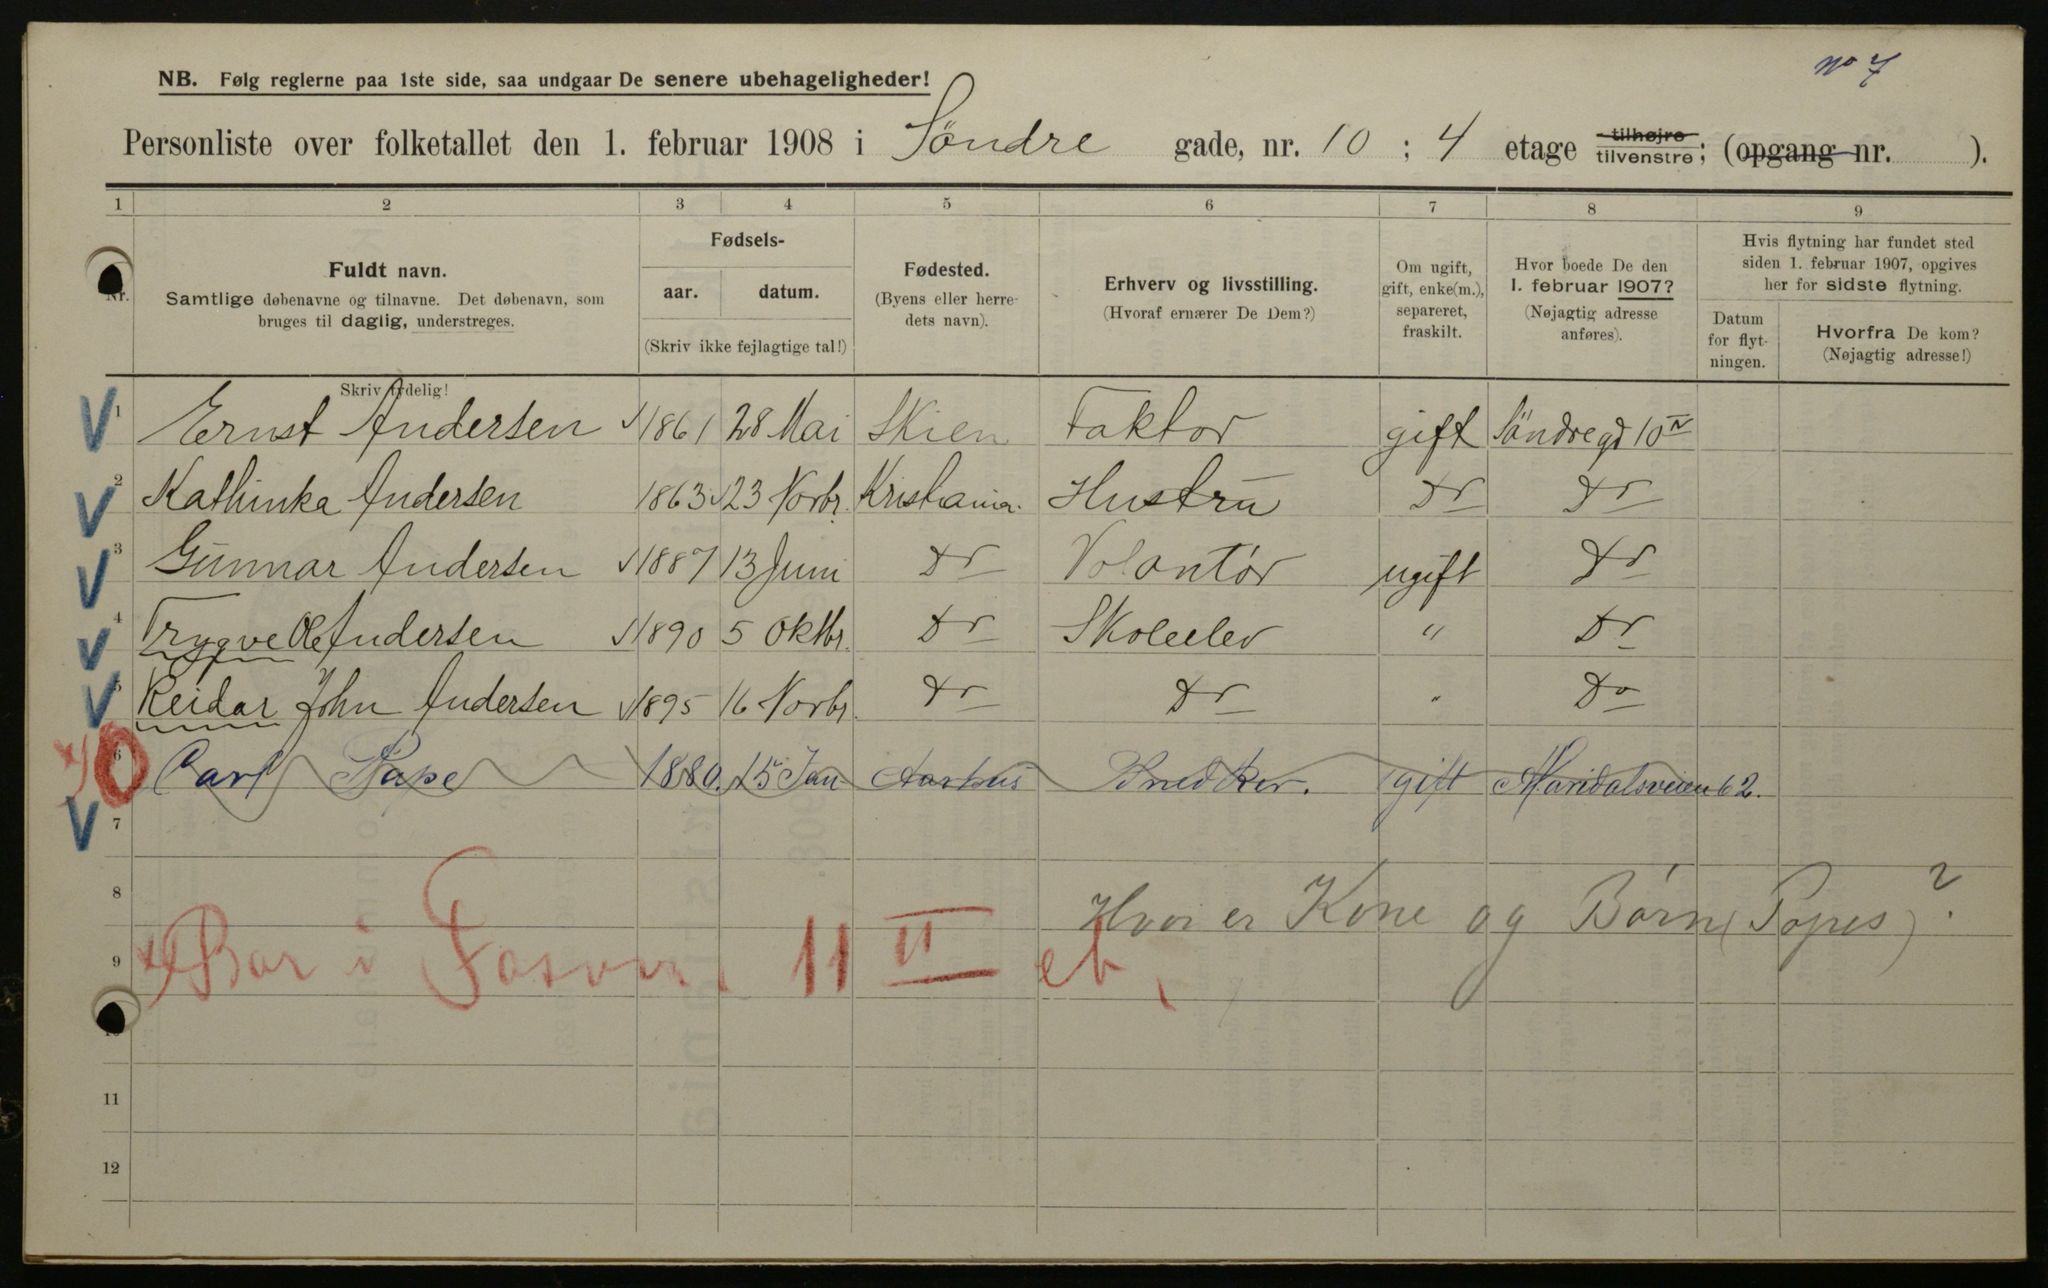 no 7
NB. Følg reglerne paa 1ste side, saa undgaar De senere ubehageligheder!
Personliste over folketallet den 1. februar 1908 i Söndre gade, nr. 10 ; 4 etage tilhøjre tilvenstre; (opgang nr. ).
1 2 3 4 5 6 7 8 9
Nr.
Fuldt navn.
Samtlige døbenavne og tilnavne. Det døbenavn, som
bruges til daglig, understreges.
Skriv tydelig!
Fødsels-
aar. datum.
(Skriv ikke fejlagtige tal!)
Fødested.
(Byens eller herre-
dets navn).
Erhverv og livsstilling.
(Hvoraf ernærer De Dem?)
Om ugift,
gift, enke(m.),
separeret,
fraskilt.
Hvor boede De den
1. februar 1907?
(Nøjagtig adresse
anføres).
Hvis flytning har fundet sted
siden 1. februar 1907, opgives
her for sidste flytning.
Datum
for flyt-
ningen.
Hvorfra De kom?
(Nøjagtig adresse!)
1 Ernst Andersen 1861 28 Mai Skien Faktor gift Söndregd 10 IV
2 Kathinka Andersen 1863 23 Novbr. Kristiania. Hustrü Do Do
3 Günnar Andersen 1887 13 Juni Do Volontør ugift Do
4 Trygve Ole Andersen 1890 5 Oktbr. Do Skoleelev " Do
5 Reidar John Andersen 1895 16 Novbr. Do Do " Do
6 Carl Pape 1880. 15 Jan Aarhus Snedker. gift Maridalsveien 62.
7
8 Hvor er Kone og Børn (Papes)?
9 Bor i 11 II
10
11
12